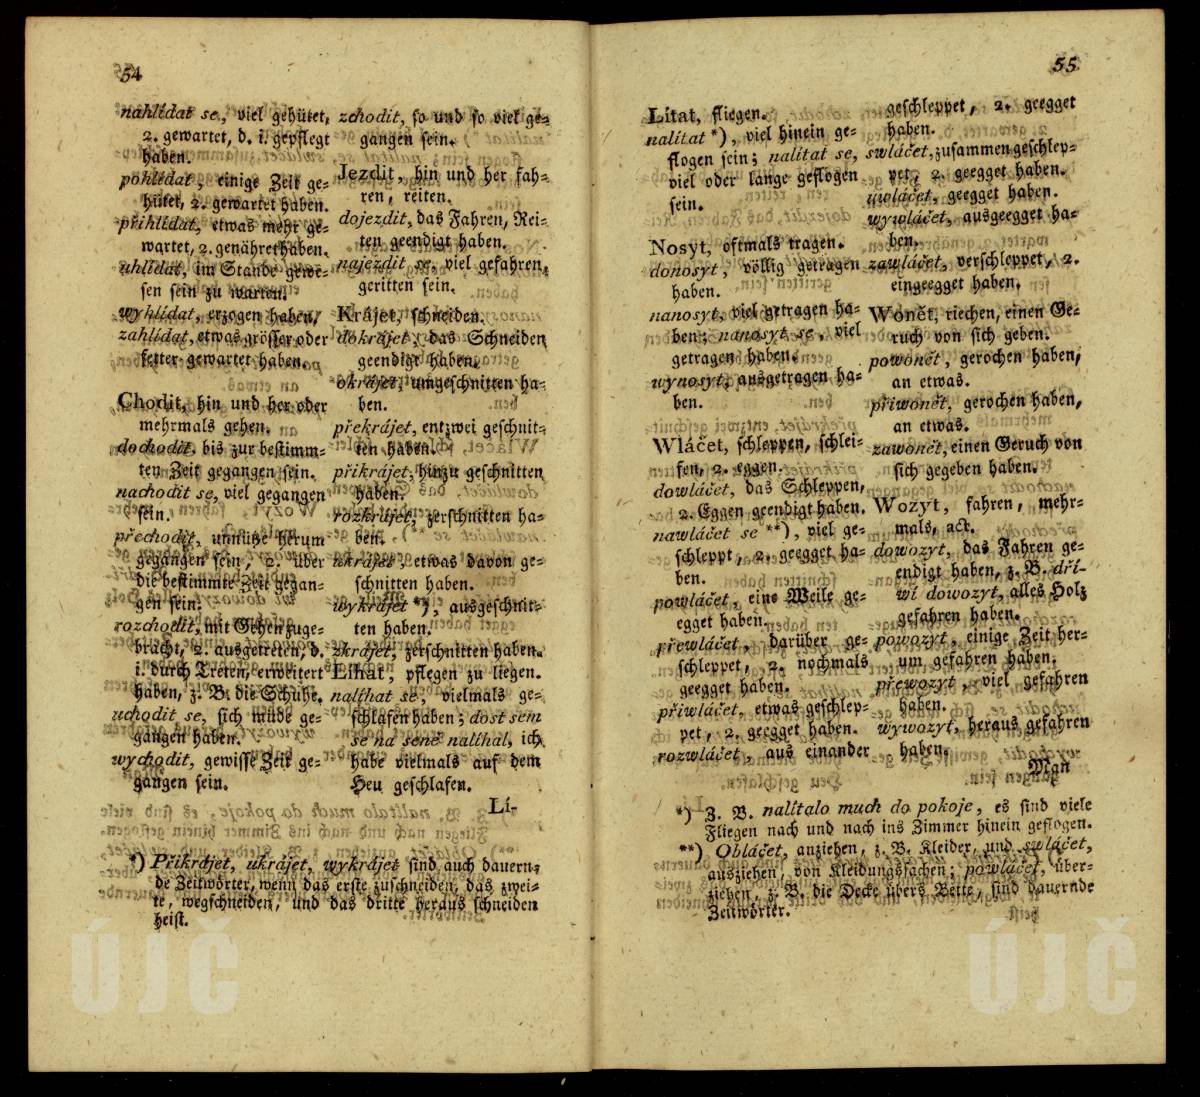 54
nahlídat se, viel gehütet,
2. gewartet, d. i. gepflegt
haben.
pohlídat, einige Zeit ge=
hütet, 2. gewartet haben.
přihlídat, etwas mehr ge=
wartet, 2. genähret haben.
uhlídat, im Stande gewe=
sen sein zu warten.
wyhlídat, erzogen haben,
zahlídat, etwas grösser oder
fetter gewartet haben.
Chodit, hin und her oder
mehrmals gehen.
dochodit, bis zur bestimm=
ten Zeit gegangen sein.
nachodit se, viel gegangen
sein.
přechodit, unnütze herum
gegangen sein, 2. über
die bestimmte Zeit gegan=
gen sein.
rozchodit, mit Gehen zuge=
bracht, 2. ausgetreten, d.
i. durch Treten, erweitert
haben, z. B. die Schuhe.
uchodit se, sich müde ge=
gangen haben.
wychodit, gewisse Zeit ge=
gangen sein.
zchodit, so und so viel ge=
gangen sein.
Jezdit, hin und her fah=
ren, reiten.
dojezdit, das Fahren, Rei=
ten geendigt haben.
najezdit se, viel gefahren,
geritten sein.
Krájet, schneiden.
dokrájet, das Schneiden
geendigt haben.
okrájet, umgeschnitten ha=
ben.
překrájet, entzwei geschnit=
ten haben.
přikrájet, hinzu geschnitten
haben.
rozkrájet, zerschnitten ha=
ben.
ukrájet, etwas davon ge=
schnitten haben.
wykrájet *), ausgeschnit=
ten haben.
zkrájet, zerschnitten haben.
Líhat, pflegen zu liegen.
nalíhat se, vielmals ge=
schlafen haben; dost sem
se na seně nalíhal, ich
habe vielmals auf dem
Heu geschlafen.
Lí-
*) Přikrájet, ukrájet, wykrájet sind auch dauern=
de Zeitwörter, wenn das erste zuschneiden, das zwei=
te, wegschneiden, und das dritte heraus schneiden
heist.
55
Lítat, fliegen.
nalítat *), viel hinein ge=
flogen sein; nalítat se,
viel oder lange geflogen
sein.
Nosyt, oftmals tragen.
donosyt, völlig getragen
haben.
nanosyt, viel getragen ha=
ben; nanosyt se, viel
getragen haben.
wynosyt, ausgetragen ha=
ben.
Wláčet, schleppen, schlei=
fen, 2. eggen.
dowláčet, das Schleppen,
2. Eggen geendigt haben.
nawláčet se **), viel ge=
schleppt, 2. geegget ha=
ben.
powláčet, eine Weile ge=
egget haben.
přewláčet, darüber ge=
schleppet, 2. nochmals
geegget haben.
přiwláčet, etwas geschlep=
pet, 2. geegget haben.
rozwláčet, aus einander
geschleppet, 2. geegget
haben.
swláčet, zusammen geschlep=
pet, 2. geegget haben.
uwláčet, geegget haben.
wywláčet, ausgeegget ha=
ben.
zawláčet, verschleppet, 2.
eingeegget haben.
Wonět, riechen, einen Ge=
ruch von sich geben.
powonět, gerochen haben,
an etwas.
přiwonět, gerochen haben,
an etwas.
zawonět, einen Geruch von
sich gegeben haben.
Wozyt, fahren, mehr=
mals, act.
dowozyt, das Fahren ge=
endigt haben, z. B. dří-
wí dowozyt, alles Holz
gefahren haben.
powozyt, einige Zeit her=
um gefahren haben.
přewozyt, viel gefahren
haben.
wywozyt, heraus gefahren
haben.
Man
*) Z. B. nalítalo much do pokoje, es sind viele
Fliegen nach und nach ins Zimmer hinein geflogen.
**) Obláčet, anziehen, z. B. Kleider, und swláčet,
ausziehen, von Kleidungsfachen; powláčet, über=
ziehen, z. B. die Decke übers Bette, sind dauernde
Zeitwörter.
ÚJČ
ÚJČ